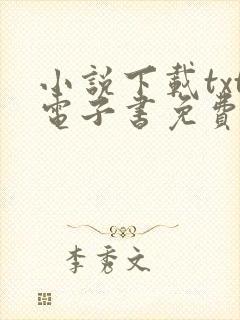 小說下載txt
電子書免費
李秀文